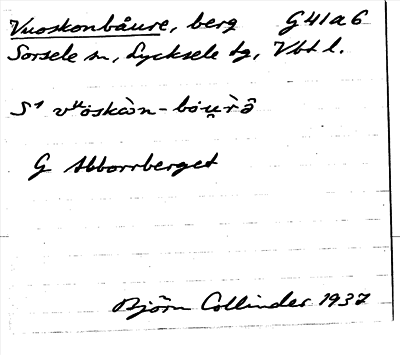 Vuoskonbåure, berg G41a6
Sorsele sn, Lycksele lg, Vbt l.
S¹ vᵘöskàn-bòu̯r̀ȧ̂
G Abborrberget
Björn Collinder 1937